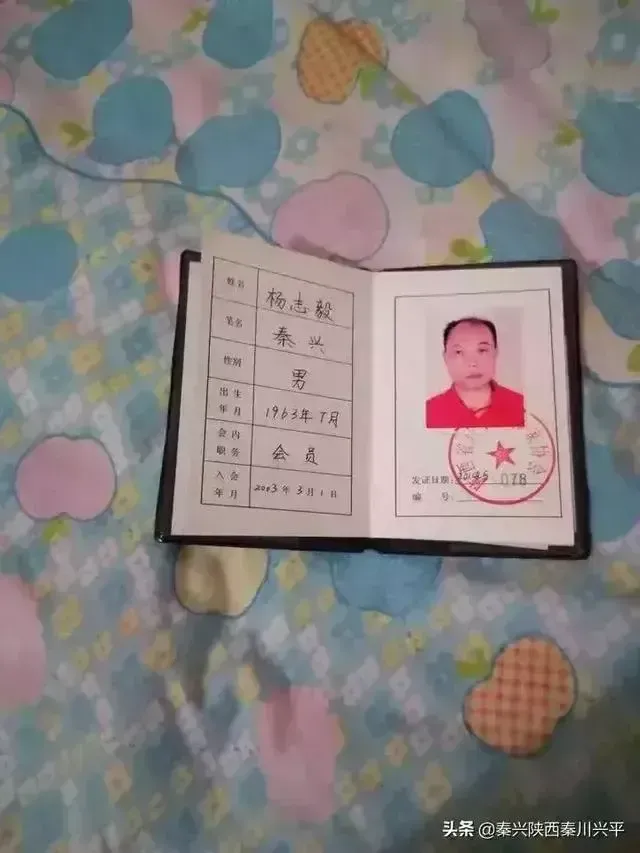 姓名 杨志毅
笔名 秦兴
性别 男
出生
年月 1963年7月
会内
职务 会员
入会
年月 2003年3月1日
发证日期：
078
编号：
头条 @秦兴陕西秦川兴平